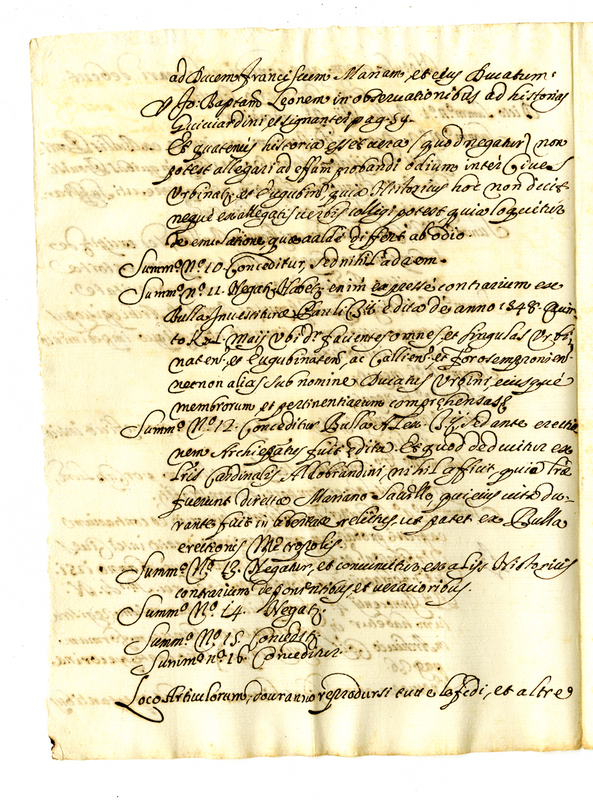 ad Ducem Franciscum Mariam, et eius Ducatum.
V. Jo: Baptam Leonem in observationibus ad historias
Guicciardini et signanter pag. 59.
Et quatenus historia esset vera (quod negatur) non
potest allegari ad effum probandi odium inter Cives
Urbinat. et Eugubin. quia Historicus hoc non dicit
neque ex allegatis verbis colligi potest quia loquitur
de emulatione, quae valde differt ab odio.
Summ.o N.o 10. Conceditur, sed nihil ad rem.
Summ.o N.o 11. Negat. Habet. enim expresse contrarium ex
Bulla Investiturae Pauli edita de anno 1548.
Kal. Maij Ubi d.r facientes omnes, et singulas Urbi-
naten. et Eugubinaten. ac Callien. et Forosempronien.
necnon alias sub nomine Ducatus Urbini, eiusque
membrorum et pertinentiarum comprehensas
Summ.o N.o 12. Conceditur Bulla Alex. sed ante erectio-
nem Archiepatus fuit edita. Et quod deducitur ex
Lris Cardinalis Aldobrandini, nihil officit, quia Lrae
fuerunt directae Mariano Savello, qui eius vita du-
rante fuit in relictus, ut patet ex Bulla
erectionis Metropolis.
Summ.o N.o 13. Negatur, et convincitur ex aliis Historicis
contrarium deponentibus et veracioribus.
Summ.o N.o 14. Negat.
Summ.o N.o 15. Concedit.
Summ.o n.o 16. Conceditur.
Loco Articulorum, douranno reprodursi tutte le fedi, et altre